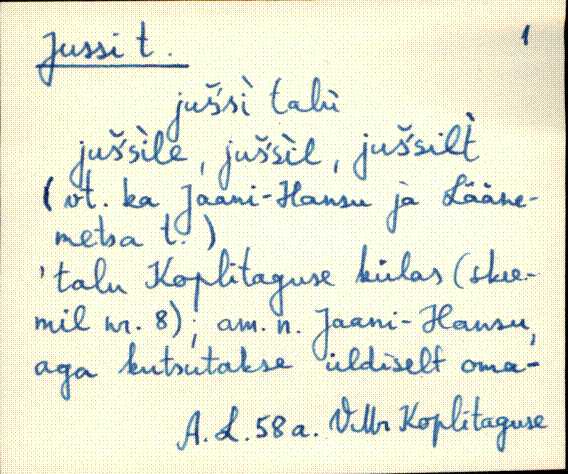 Jussi t. 1
jušsì talù
jušsìle, jušsìl, jušsìlt̀
(vt. ka Jaani-Hansu ja Lääne-
metsa t.)
'talu Koplitaguse külas (skee-
mil nr. 8); am. n. Jaani-Hansu,
aga kutsutakse üldiselt oma-
A. L. 58a. VMr Koplitaguse